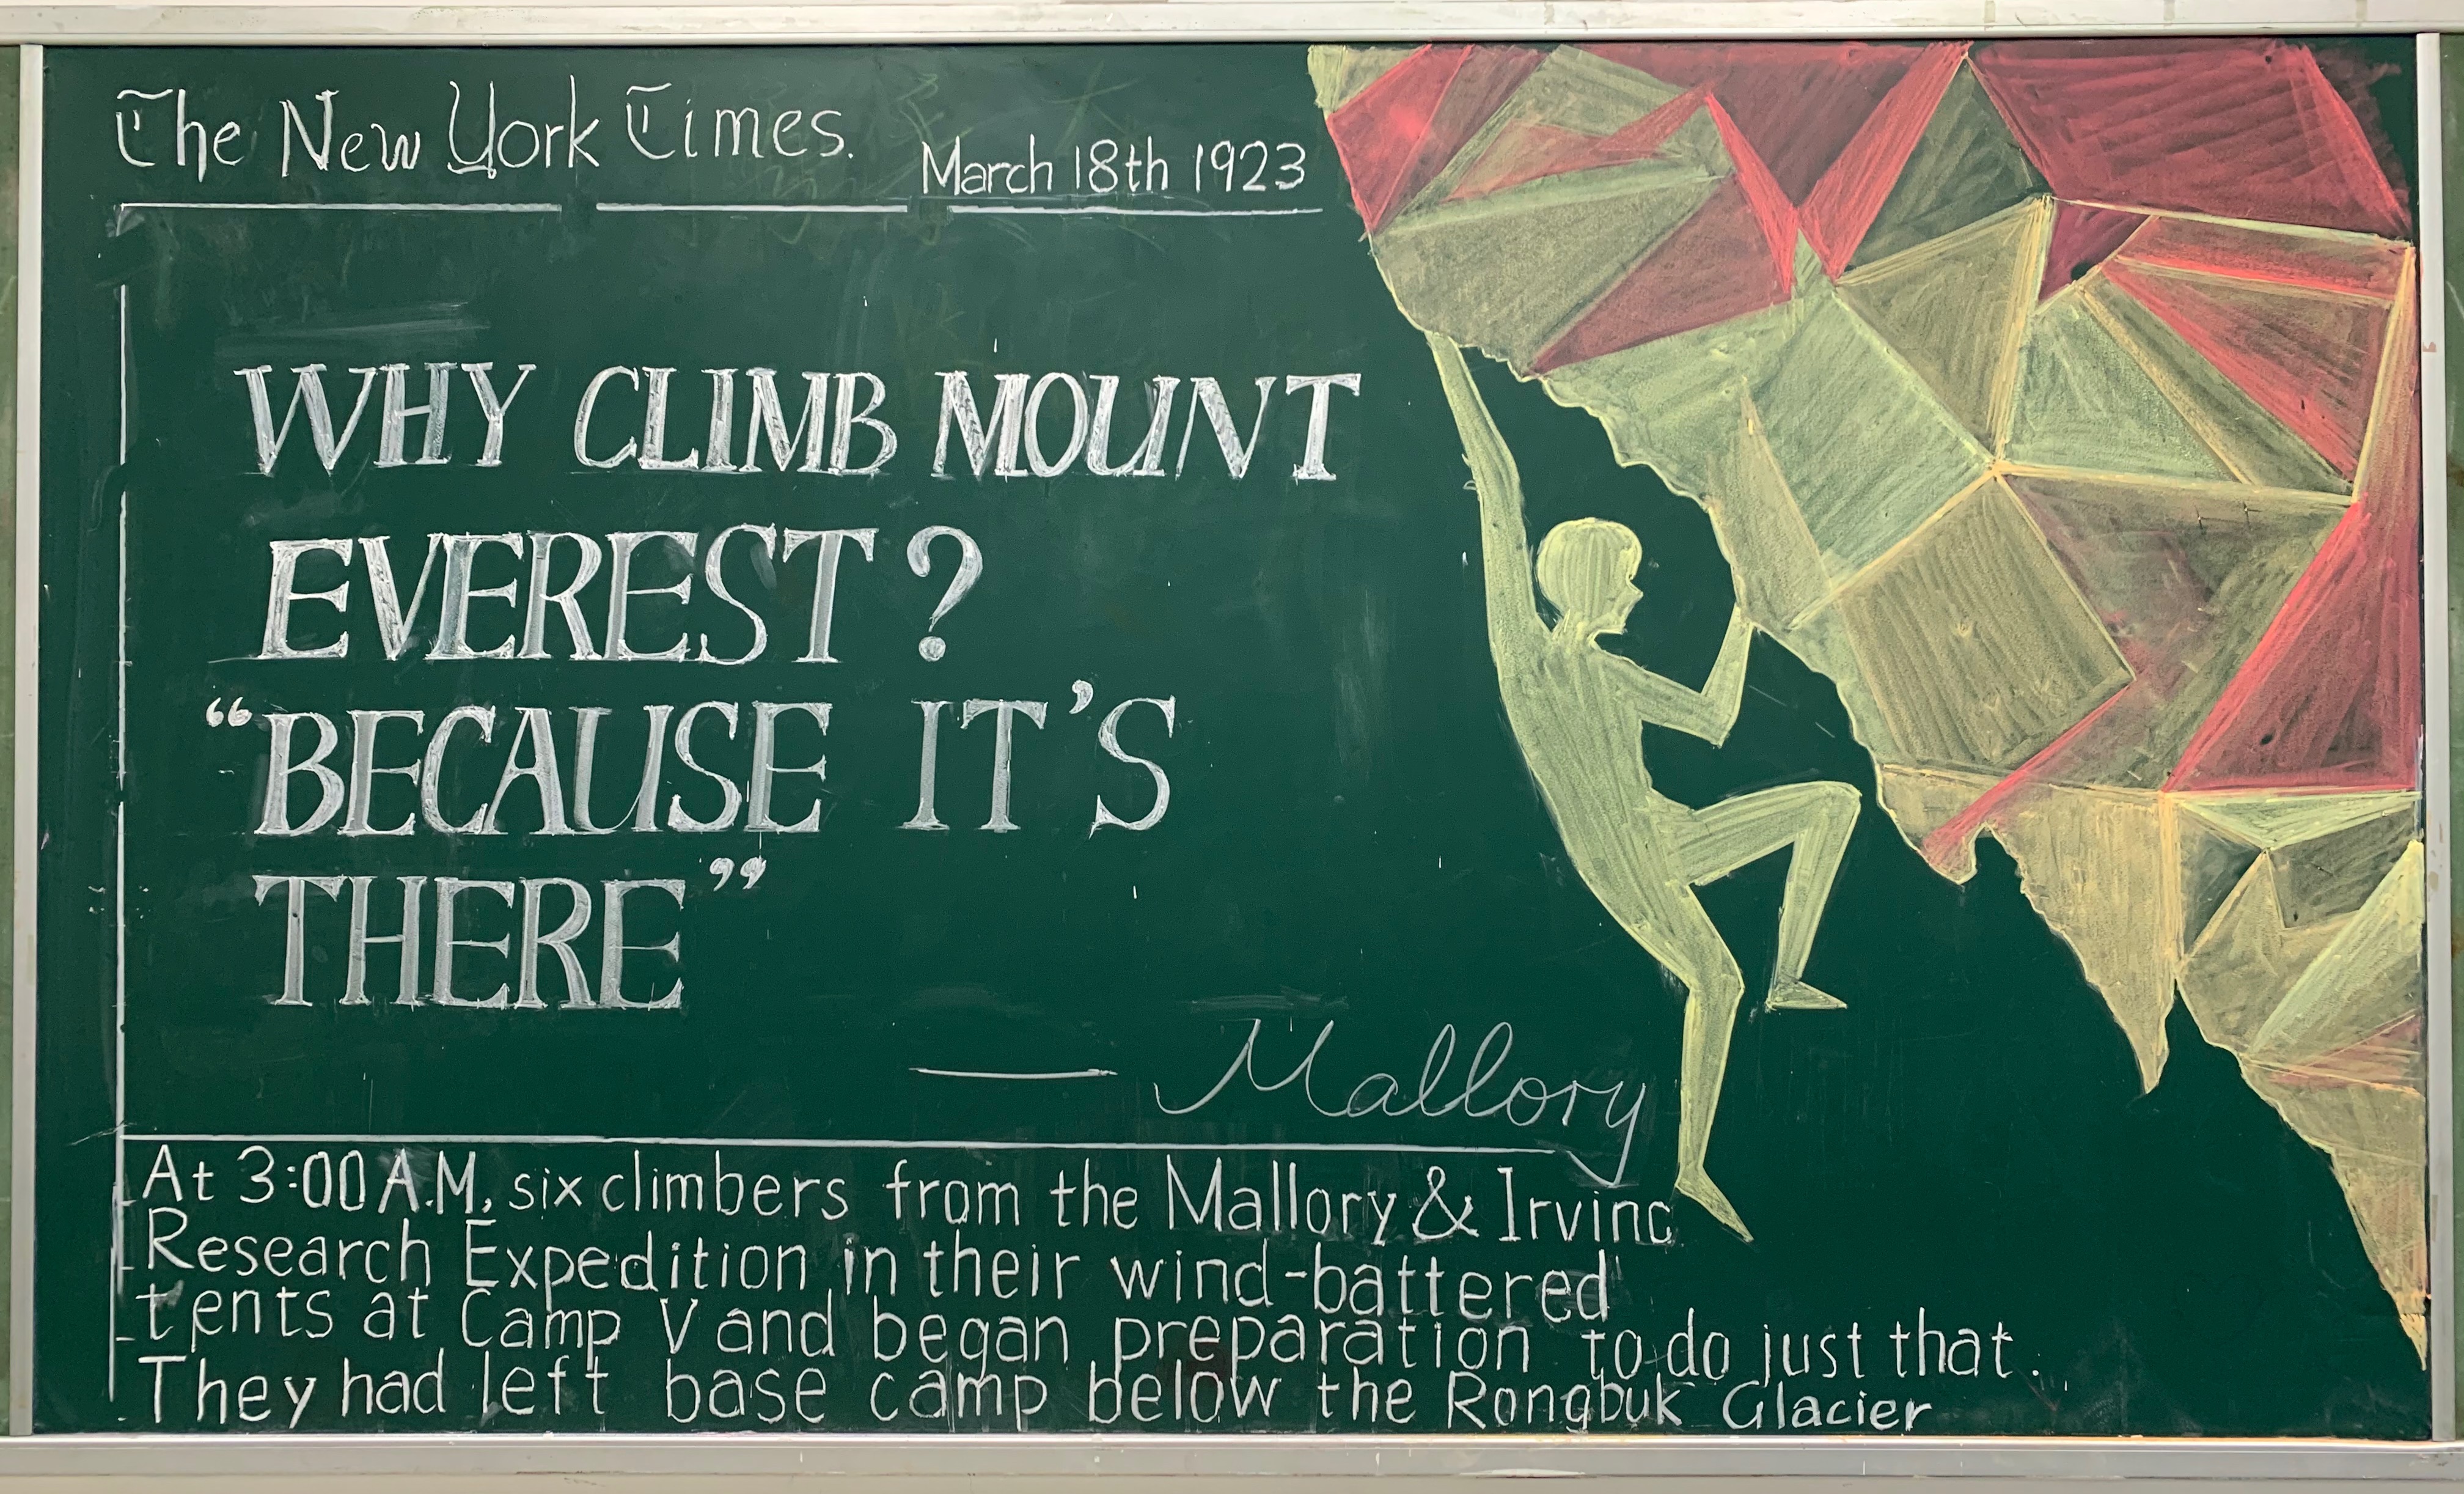 The New York Times.
March 18th 1923
WHY CLIMB MOUNT
EVEREST?
“BECAUSE IT’S
THERE”
— Mallory
At 3:00 A.M, six climbers from the Mallory & Irvinc
Research Expedition in their wind-battered
tents at Camp V and began preparation to do just that.
They had left base camp below the Rongbuk Glacier